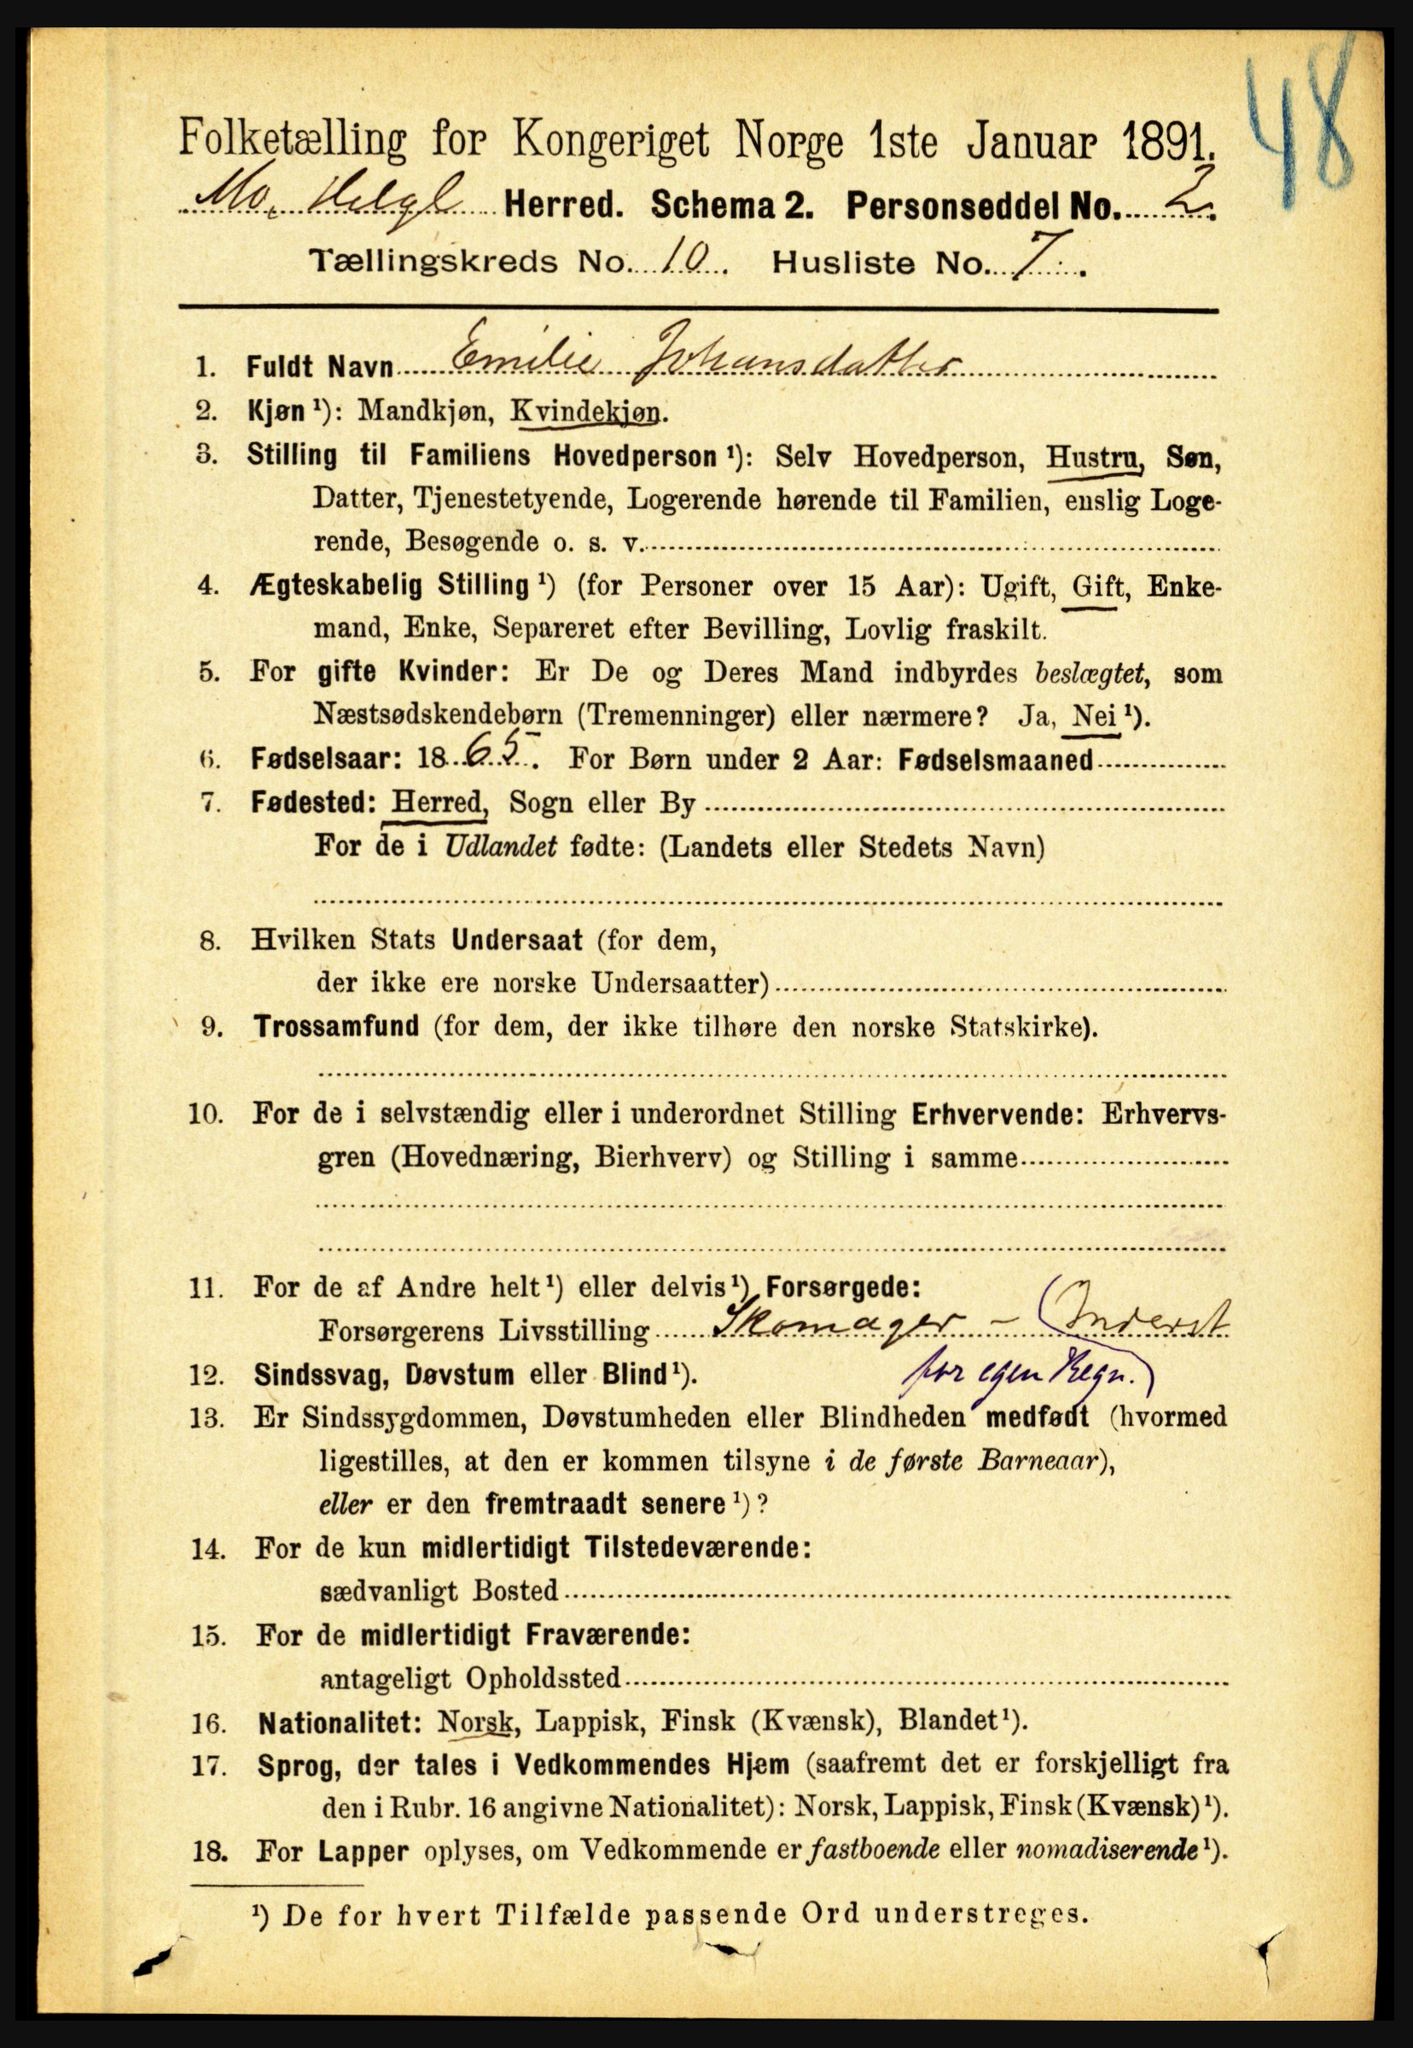 48
Folketælling for Kongeriget Norge 1ste Januar 1891.
Mo, Helgl Herred. Schema 2. Personseddel No. 2.
Tællingskreds No. 10. Husliste No. 7.
1. Fuldt Navn Emilie Johansdatter
2. Kjøn ¹): Mandkjøn, Kvindekjøn.
3. Stilling til Familiens Hovedperson ¹): Selv Hovedperson, Hustru, Søn,
Datter, Tjenestetyende, Logerende hørende til Familien, enslig Loge-
rende, Besøgende o. s. v.
4. Ægteskabelig Stilling ¹) (for Personer over 15 Aar): Ugift, Gift, Enke-
mand, Enke, Separeret efter Bevilling, Lovlig fraskilt.
5. For gifte Kvinder: Er De og Deres Mand indbyrdes beslægtet, som
Næstsødskendebørn (Tremenninger) eller nærmere? Ja, Nei ¹).
6. Fødselsaar: 1865. For Børn under 2 Aar: Fødselsmaaned
7. Fødested: Herred, Sogn eller By
For de i Udlandet fødte: (Landets eller Stedets Navn)
8. Hvilken Stats Undersaat (for dem,
der ikke ere norske Undersaatter)
9. Trossamfund (for dem, der ikke tilhøre den norske Statskirke).
10. For de i selvstændig eller i underordnet Stilling Erhvervende: Erhvervs-
gren (Hovednæring, Bierhverv) og Stilling i samme
11. For de af Andre helt ¹) eller delvis ¹) Forsørgede:
Forsørgerens Livsstilling Skomager - (Inderst
for egen Regn.)
12. Sindssvag, Døvstum eller Blind ¹).
13. Er Sindssygdommen, Døvstumheden eller Blindheden medfødt (hvormed
ligestilles, at den er kommen tilsyne i de første Barneaar),
eller er den fremtraadt senere ¹)?
14. For de kun midlertidigt Tilstedeværende:
sædvanligt Bosted
15. For de midlertidigt Fraværende:
antageligt Opholdssted
16. Nationalitet: Norsk, Lappisk, Finsk (Kvænsk), Blandet ¹).
17. Sprog, der tales i Vedkommendes Hjem (saafremt det er forskjelligt fra
den i Rubr. 16 angivne Nationalitet): Norsk, Lappisk, Finsk (Kvænsk) ¹).
18. For Lapper oplyses, om Vedkommende er fastboende eller nomadiserende ¹).
¹) De for hvert Tilfælde passende Ord understreges.